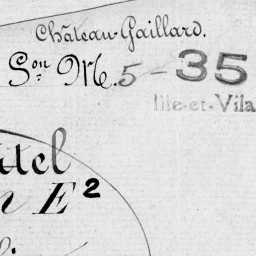 Château-Gaillard.
Son M. 5-35
Ille-et-Vila
tel
n E²